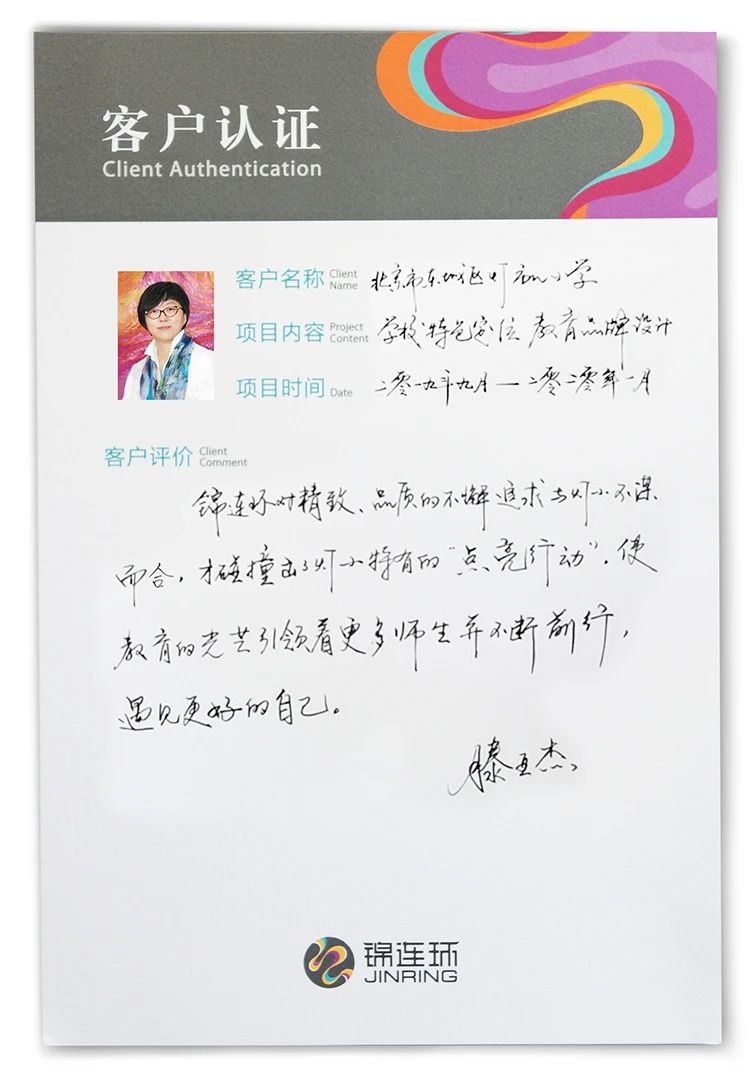 客户认证
Client Authentication
客户名称 Client Name 北京市东城区灯市口小学
项目内容 Project Content 学校特色定位 教育品牌设计
项目时间 Date 二零一九年九月—二零二零年一月
客户评价 Client Comment
锦连环对精致、品质的不懈追求与灯小不谋
而合，才碰撞出了灯小特有的“点亮行动”，使
教育的光芒引领着更多师生并不断前行，
遇见更好的自己。
滕亚杰
锦连环
JINRING